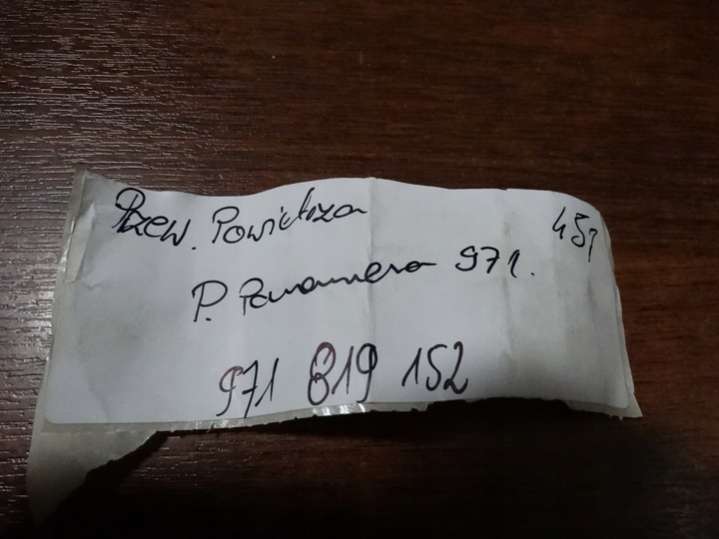 Przew. Powietrza
P. Panamera 971.
971 819 152